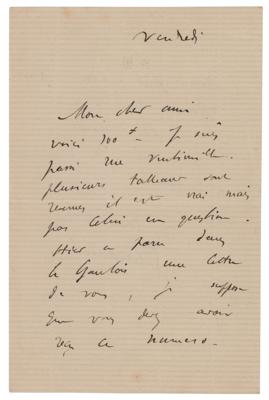 vendredi
Mon cher ami
voici 100 f – Je suis
passé rue Vintimille.
plusieurs tableaux sont
reservés il est vrai mais
pas celui en question.
Hier a paru dans
le Gaulois une lettre
de vous, je suppose
que vous devez avoir
reçu ce numero.